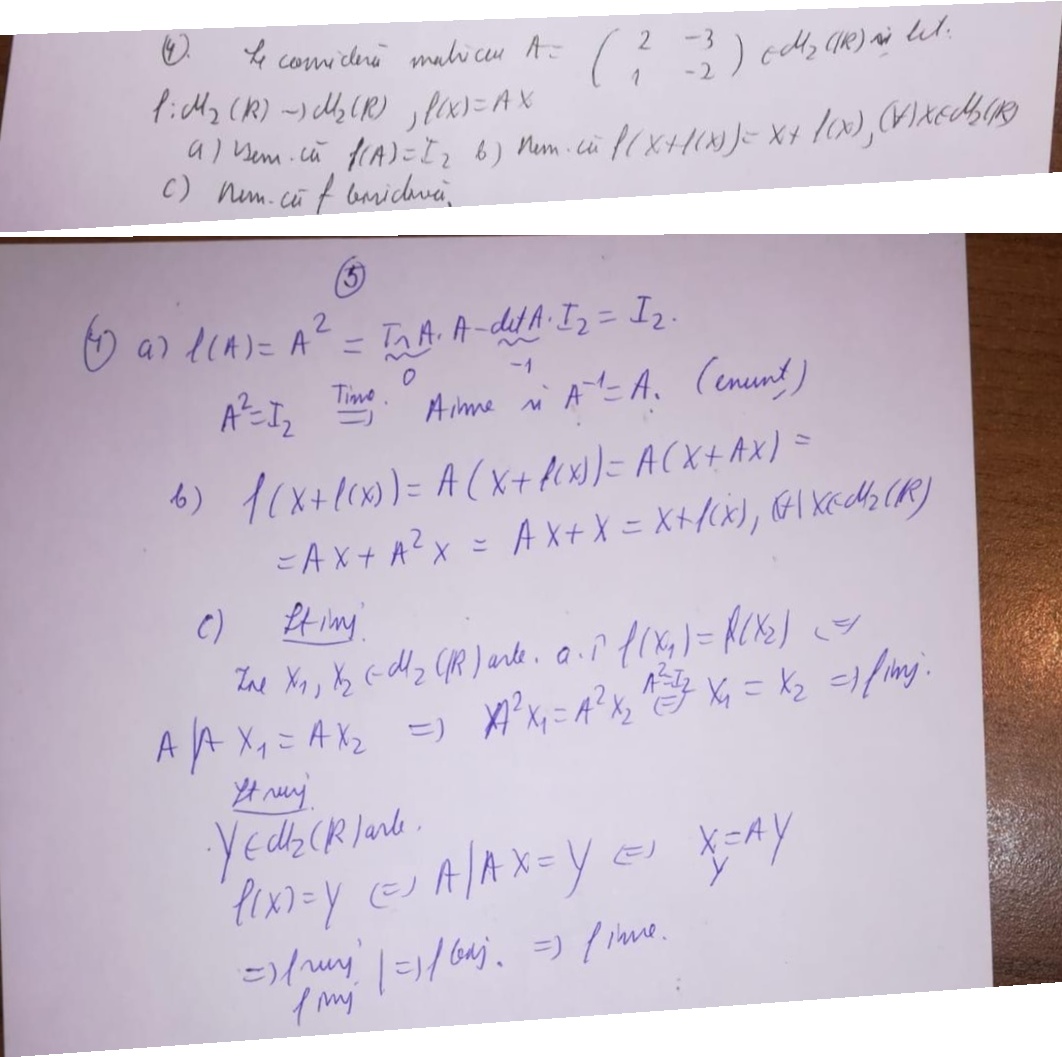 4. Se consideră matricea A = ( 2 -3 ; 1 -2 ) ∈ M₂(ℝ) și fct.
f: M₂(ℝ) → M₂(ℝ), f(X) = AX
a) Dem. că f(A) = I₂ b) Dem. că f(X+f(X)) = X + f(X), (∀) X ∈ M₂(ℝ)
c) Dem. că f
5
4) a) f(A) = A² = Tr A · A - det A · I₂ = I₂.
0 -1
A² = I₂ ⇒ A și A⁻¹ = A. (enunț)
b) f(X+f(X)) = A(X+f(X)) = A(X+AX) =
= AX + A²X = AX + X = X + f(X), (∀) X ∈ M₂(ℝ)
c) St inj.
Fie X₁, X₂ ∈ M₂(ℝ) arb. a.î f(X₁) = f(X₂) ⇔
A | A X₁ = AX₂ ⇒ A²X₁ = A²X₂ A²=I₂ ⇔ X₁ = X₂ ⇒ f inj.
St surj
Y ∈ M₂(ℝ) arb.
f(X) = Y ⇔ A | AX = Y ⇔ X_Y = AY
⇒ f surj | ⇒ f bij. ⇒ f inv.
f inj